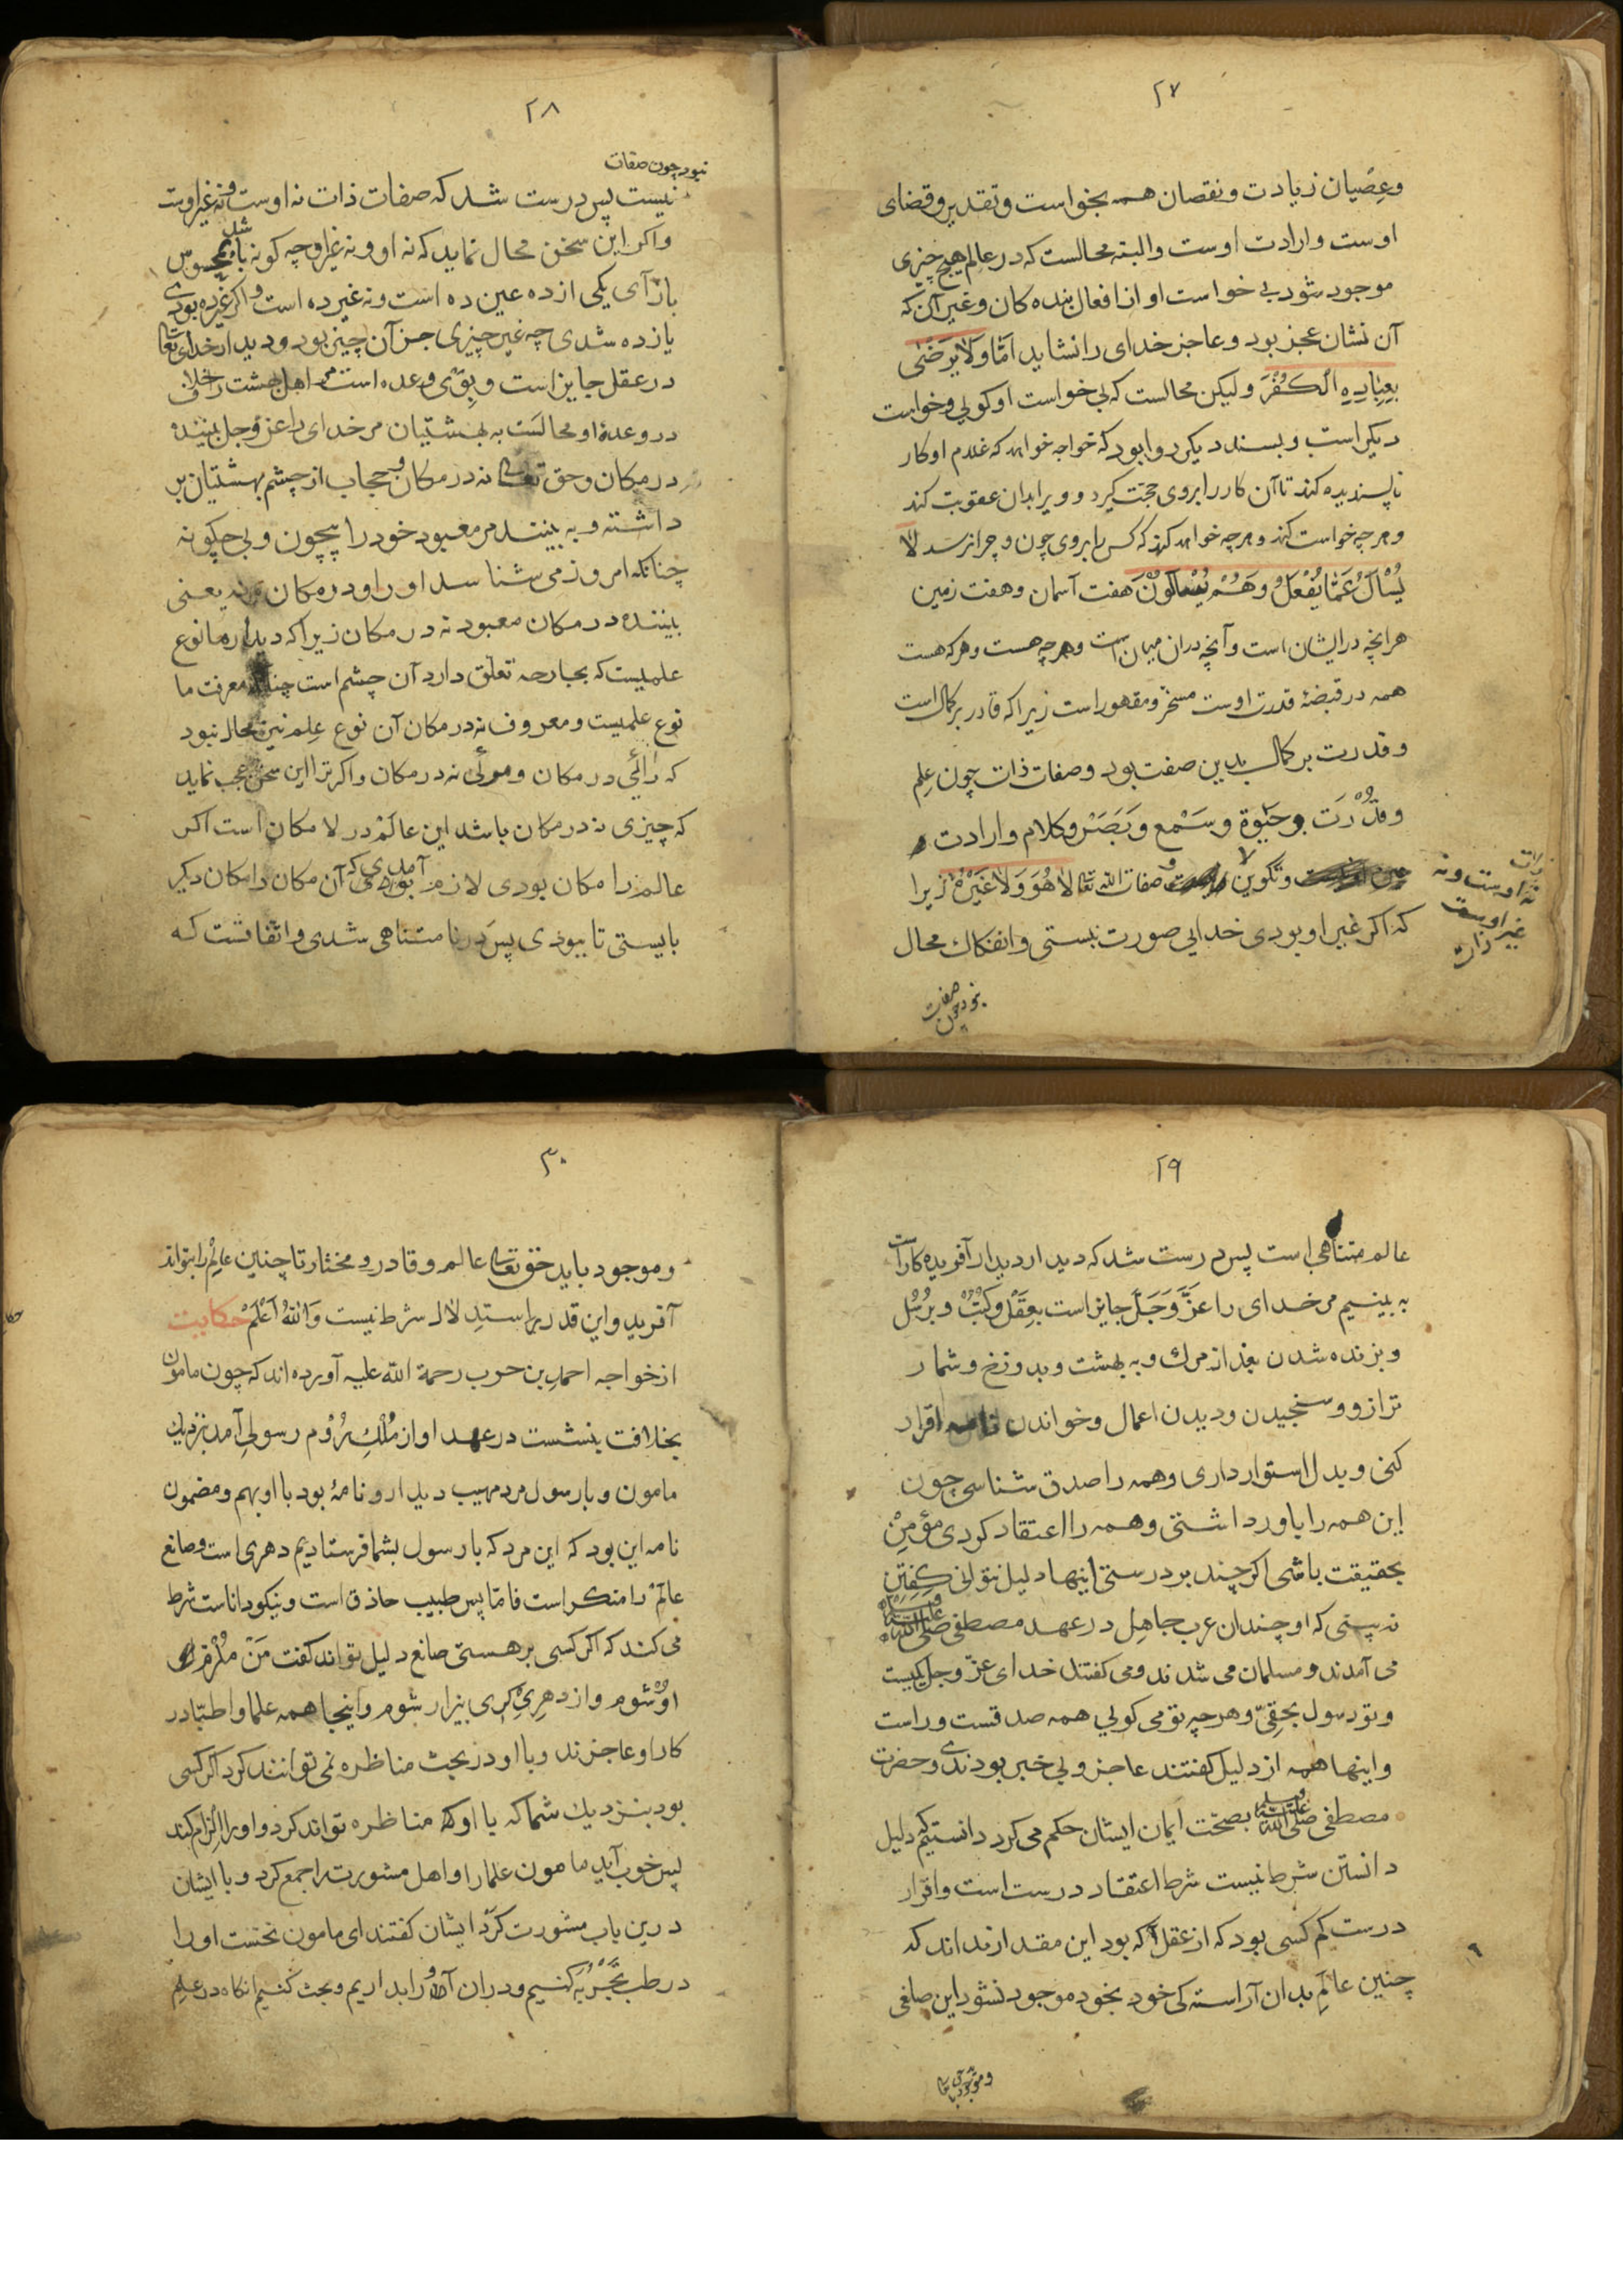 ۲۷
وعصیان زیادت ونقصان همه بخواست وتقدیر وقضای
اوست وارادت اوست والبته محالست که در عالم هیچ چیزی
موجود شود بی خواست او از افعال بنده کان وغیر آن که
آن نشان عجز بود وعاجز خدای را نشاید امّا وَلَا یَرْضٰی
بِعِبَادِهِ الْكُفْرَ ولیکن محالست که بی خواست او کویی وخواست
دیکر است وپسند دیکر روا بود که خواجه خواهد که غلام او کار
ناپسندیده کند تا آن کار را بروی حجّت کیرد وویرا بدان عقوبت کند
وهر چه خواست کند وهر چه خواهد کند که کس را بروی چون وچرا نرسد لَا
یُسْأَلُ عَمَّا یَفْعَلُ وَهُمْ یُسْأَلُونَ هفت آسمان وهفت زمین
هرانچه در ایشان است وآنچه دران میان است وهر چه هست وهر که هست
همه در قبضهٔ قدرت اوست مسخّر ومقهور است زیرا که قادر بر کمال است
وقدرت بر کمال بدین صفت بود وصفات ذات چون علم
وقُدْرَت وحَیٰوة وسَمْع وبَصَرْ وکلام وارادت
وتکوین وصفات الله تعا لَا هُوَ وَلَا غَیْرُهُ زیرا
ذات
نه اوست ونه
غیر اوست
ذات
که اکر غیر او بودی خدایی صورت نبستی وانفکاك محال
نبود چون صفات
۲۸
نبود چون صفات
نیست پس درست شد که صفات ذات نه اوست ونه غیر اوست
واکر این سخن محال نماید که نه او ونه غیر او چه کونه باشد بمحسوس
باز آی یکی از ده عین ده است ونه غیر ده است واکر غیر ده بودی
یازده شدی چه غیر چیزی جز آن چیز بود ودیدار خدای تعا
در عقل جایز است وبوی وعده است مر اهل بهشت را خلاف
در وعدهٔ او محالست به بهشتیان مر خدای را عزّ وجل ببینند
در مکان وحق تعالی نه در مکان وحجاب از چشم بهشتیان بر
داشته وبه بینند مر معبود خود را بیچون وبی چکونه
چنانکه امروز می شناسد او را ودر مکان نه یعنی
بیننده در مکان معبود نه در مکان زیرا که دیدار ما نوع
علمیست که بجارحه تعلّق دارد آن چشم است چنانکه معرفت ما
نوع علمیست ومعروف نه در مکان آن نوع عِلم نیز محال نبود
که رائی در مکان ومرئی نه در مکان واکر ترا این سخن عجب نماید
که چیزی نه در مکان باشد این عالم در لا مکان است اکر
عالم را مکان بودی لازم آمدی که آن مکان را مکان دیکر
بایستی تا نبودی پس در نا متناهی شدی واتفاقست که
۲۹
عالم متناهی است پس درست شد که دیدار دیدار آفریده کار است
به بینیم مر خدای را عَزَّ وَجَلَّ جایز است بعقل وکتب وبرُسُل
وبزنده شدن بعد از مرك وبه بهشت وبدوزخ وشمار
ترازو وسنجیدن ودیدن اعمال وخواندن نامه اقرار
کنی وبدل استوار داری وهمه را صدق شناسی چون
این همه را باور داشتی وهمه را اعتقاد کردی مؤمن
بحقیقت باشی اکر چند بر درستی اینها دلیل نتوانی کفتن
نه بینی که او چندان عرب جاهل در عهد مصطفی صلی الله علیه وسلم
می آمدند ومسلمان می شدند ومی کفتند خدای عزّ وجل یکیست
وتو رسول بحقی وهر چه تو می کویی همه صدقست وراست
واینها همه از دلیل کفتند عاجز وبی خبر بودندی وحضرت
مصطفی صلی الله علیه وسلم بصحّت ایمان ایشان حکم می کرد دانستیم که دلیل
دانستن شرط نیست شرط اعتقاد درست است واقرار
درست کم کسی بود که از عقل آکه بود این مقدار نداند که
چنین عالم بدان آراسته کی خود بخود موجود نشود این صانعی
وموجود باید حق تعا
۳۰
وموجود باید حق تعالی عالم وقادر ومختار تا چنین عالم را بتواند
آفرید واین قدر بر استدلال شرط نیست وَاللهُ اَعْلَمُ حکایت
از خواجه احمد بن حرب رحمة الله علیه آورده اند که چون مامون
بخلافت بنشست در عهد او از مُلْكِ رُوم رسولی آمد بنزدیك
مامون وبا رسول مرد مهیب دیدار ونامهٔ بود با او بهم ومضمون
نامه این بود که این مرد که با رسول بشما فرستادیم دهری است وصانع
عالم را منکر است فامّا پس طبیب حاذق است ونیکو داناست شرط
می کند که اکر کسی بر هستی صانع دلیل تواند کفت مَنْ مُلْزَم
او شوم واز دهری کری بیزار شوم واینجا همه علما واطبّا در
کار او عاجزند وبا او در بحث مناظره نمی توانند کرد اکر کسی
بود بنزدیك شما که با او مناظره تواند کرد واو را الزام کند
پس خوب آید مامون علما را واهل مشورت را جمع کرد وبا ایشان
درین باب مشورت کرد ایشان کفتند ای مامون نخست او را
در طب تَجْرُبَه کنیم ودران آو را بداریم وبحث کنیم انکاه در علم